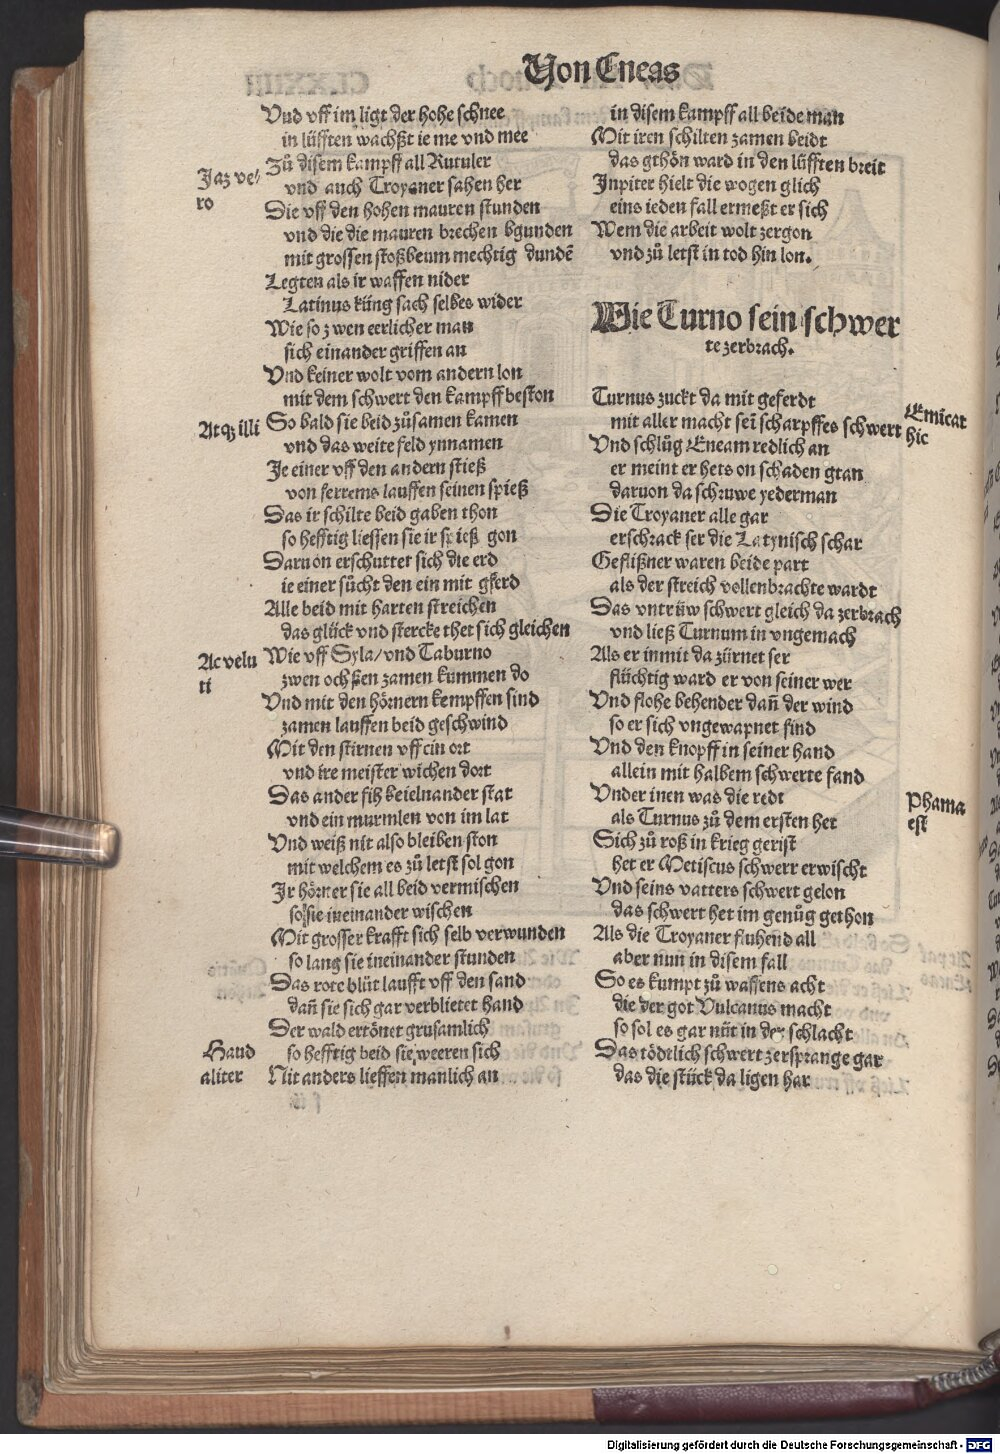 Von Eneas
Vnd vff im ligt der hohe schnee
in lüfften wachßt ie me vnd mee
Jaz ve/
ro
Zů disem kampff all Rutuler
vnd auch Troyaner sahen her
Die vff den hohen mauren stunden
vnd die die mauren brechen bgunden
mit grossen stoßbeum mechtig dundē
Legten als ir waffen nider
Latinus küng sach selbes wider
Wie so zwen eerlicher man
sich einander griffen an
Vnd keiner wolt vom andern lon
mit dem schwert den kampff beston
Atqz illi
So bald sie beid zůsamen kamen
vnd das weite feld ynnamen
Je einer vff den andern stieß
von ferrems lauffen seinen spieß
Das ir schilte beid gaben thon
so hefftig liessen sie ir spieß gon
Daruon erschuttet sich die erd
ie einer sůcht den ein mit gferd
Alle beid mit harten streichen
das glück vnd stercke thet sich gleichen
Ac velu
ti
Wie vff Syla/ vnd Taburno
zwen ochßen zamen kummen do
Vnd mit den hörnern kempffen sind
zamen lauffen beid geschwind
Mit den stirnen vff ein ort
vnd ire meister wichen dort
Das ander fih beieinander stat
vnd ein murmlen von im lat
Vnd weiß nit also bleiben ston
mit welchem es zů letst sol gon
Jr hörner sie all beid vermischen
so sie ineinander wischen
Mit grosser krafft sich selb verwunden
so lang sie ineinander stunden
Das rote blůt laufft vff den sand
dañ sie sich gar verblietet hand
Der wald ertönet grusamlich
so hefftig beid sie weeren sich
Haud
aliter
Nit anders lieffen manlich an
in disem kampff all beide man
Mit iren schilten zamen beidt
das gthön ward in den lüfften breit
Jnpiter hielt die wogen glich
eins ieden fall ermeßt er sich
Wem die arbeit wolt zergon
vnd zů letst in tod hin lon.
Wie Turno sein schwer
te zerbrach.
Turnus zuckt da mit geferdt
mit aller macht sei᷑ scharpffes schwert
Emicat
hic
Vnd schlůg Eneam redlich an
er meint er hets on schaden gtan
daruon da schruwe yederman
Die Troyaner alle gar
erschrack ser die Latynisch schar
Geflißner waren beide part
als der streich vollenbrachte wardt
Das vntrüw schwert gleich da zerbrach
vnd ließ Turnum in vngemach
Als er inmit da zürnet ser
flüchtig ward er von seiner wer
Vnd flohe behender dañ der wind
so er sich vngewapnet find
Vnd den knopff in seiner hand
allein mit halbem schwerte fand
Phama
est
Vnder inen was die redt
als Turnus zů dem ersten het
Sich zů roß in krieg gerist
het er Metiscus schwerr erwischt
Vnd seins vatters schwert gelon
das schwert het im genůg gethon
Als die Troyaner fluhend all
aber nun in disem fall
So es kumpt zů waffens acht
die der got Vulcanus macht
so sol es gar nüt in der schlacht
Das tödtlich schwert zersprange gar
das die stück da ligen har
Digitalisierung gefördert durch die Deutsche Forschungsgemeinschaft - DFG